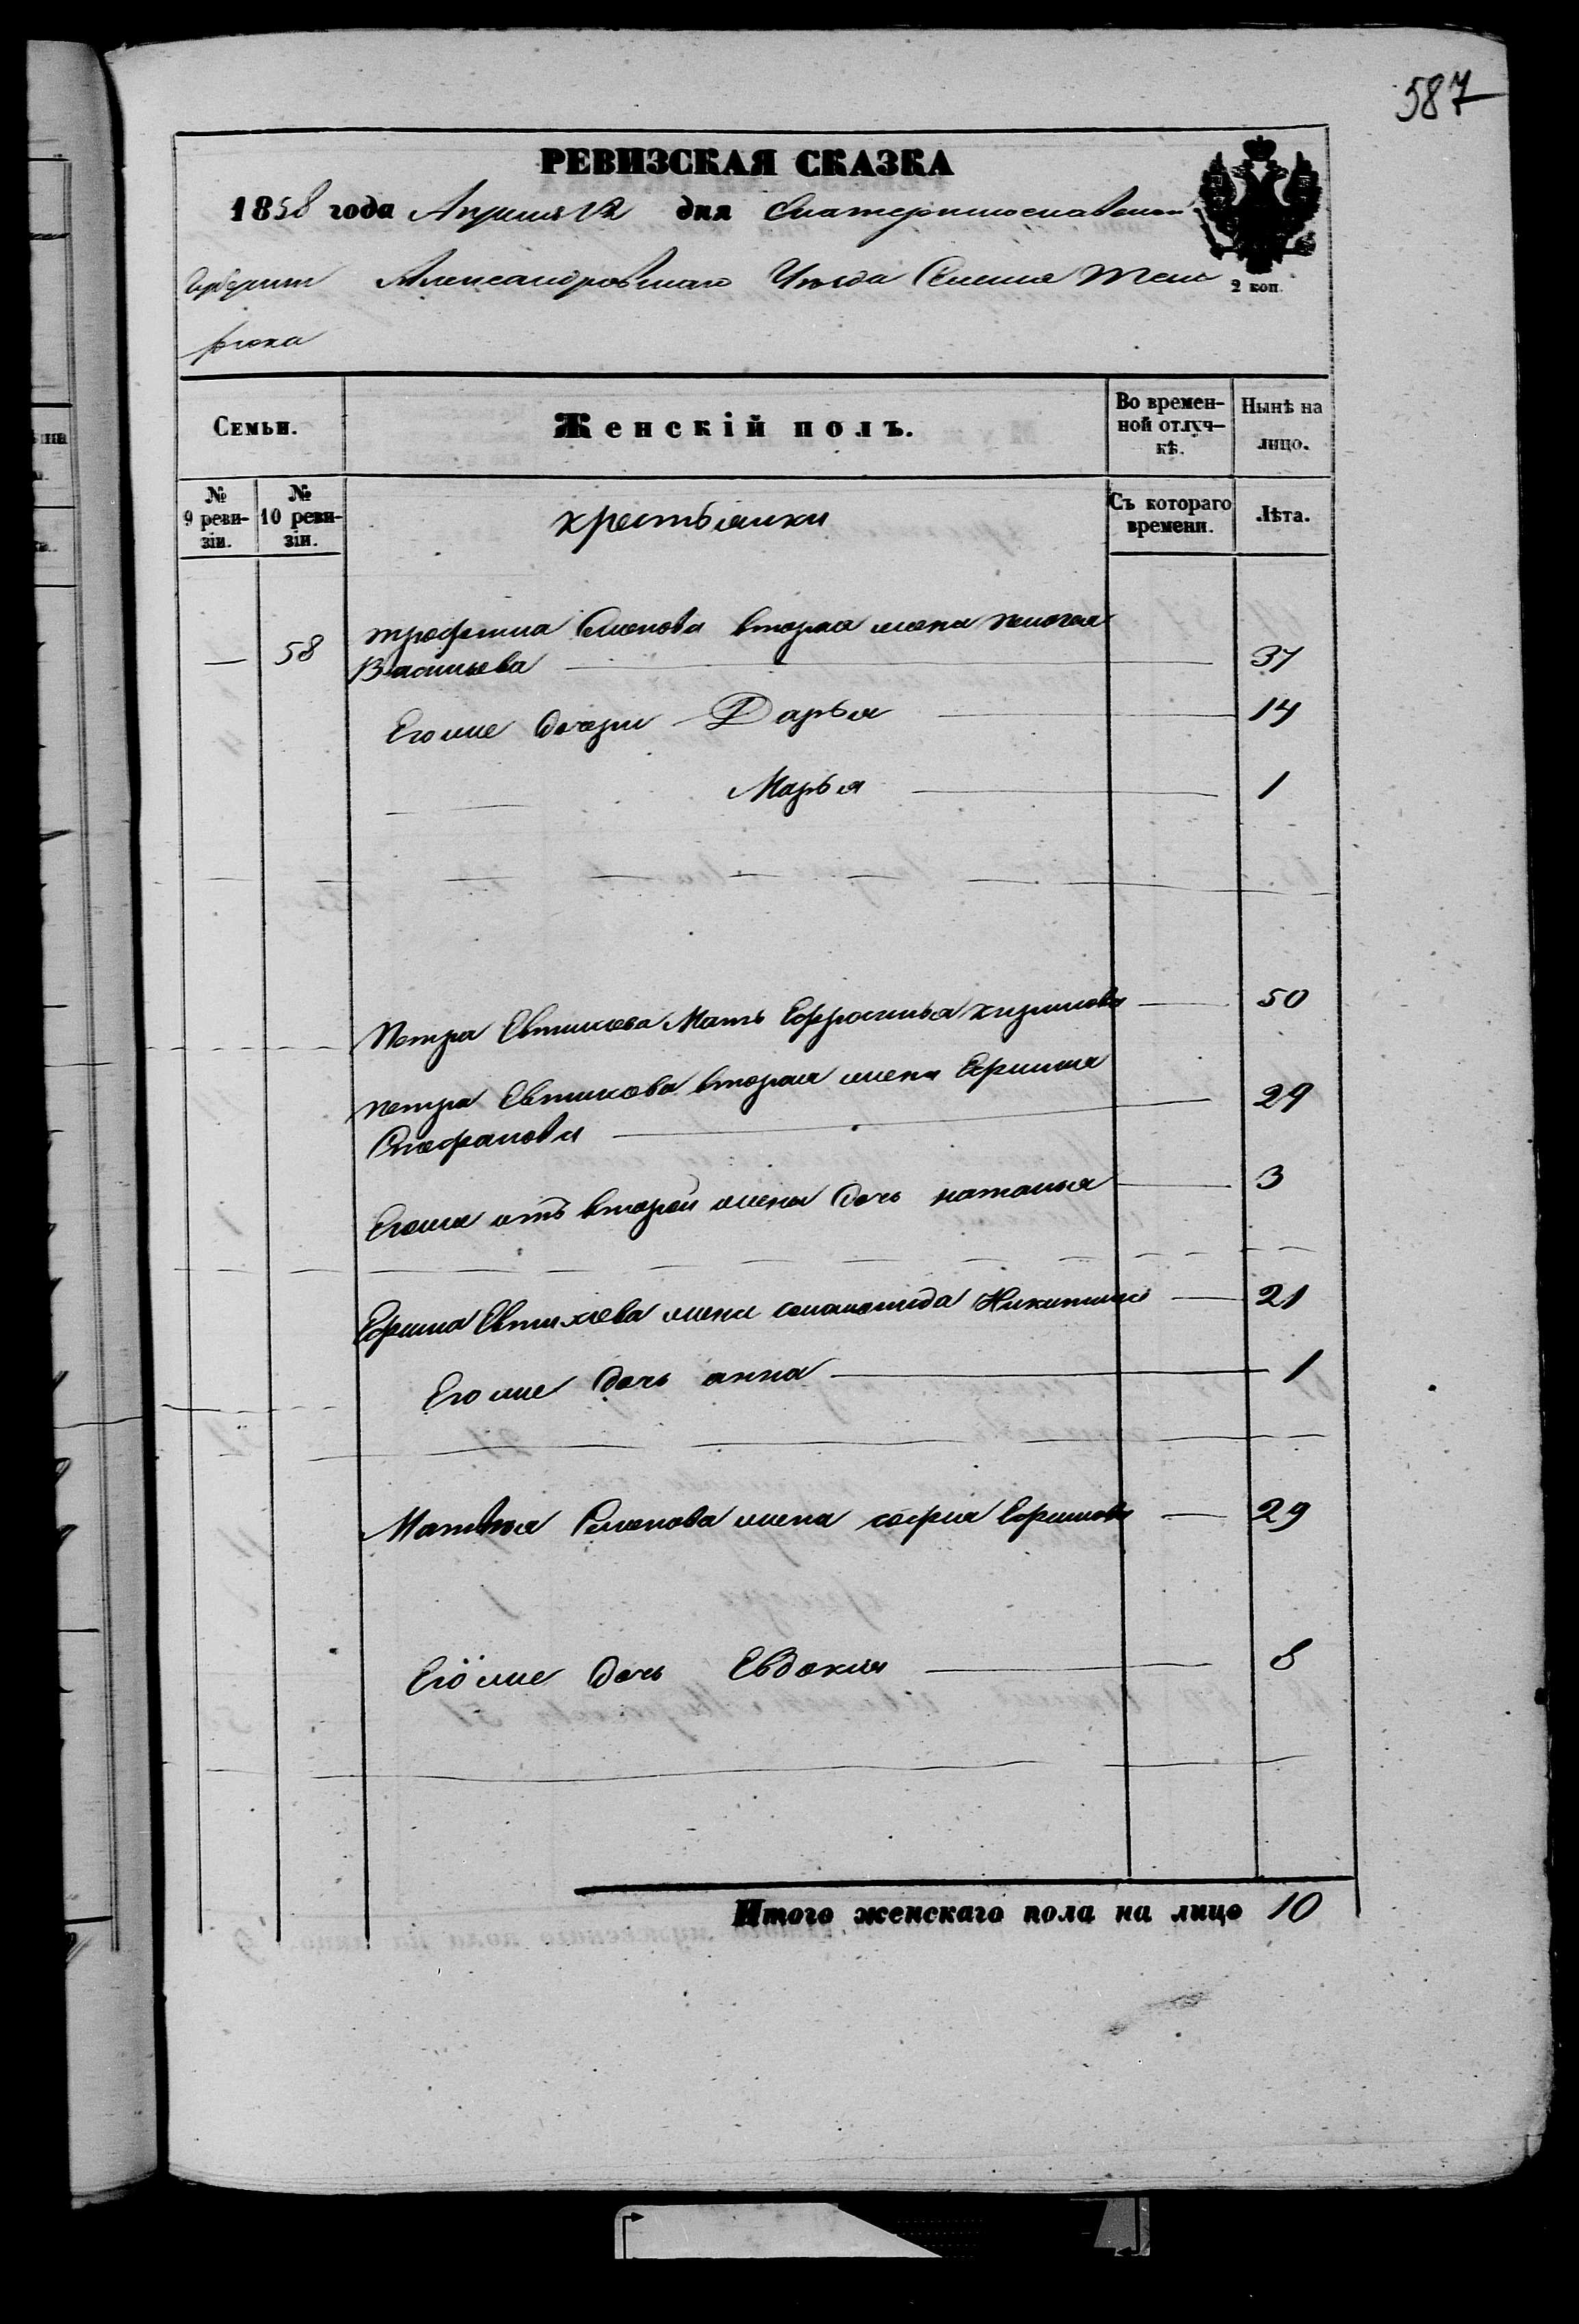 587
РЕВИЗСКАЯ СКАЗКА
1858 года Апреля 12 дня Екатеринославской
Губернии Александровскаго Уезда Селения
2 коп.
Семьи.
Женскій полъ.
Во времен-
ной отлуч-
кѣ.
Нынѣ на
лицо.
№
9 реви-
зіи.
№
10 реви-
зіи.
хрестьянки
Съ котораго
времени.
Лѣта.
— 58 трофима Семенова вторая жена
Васильева — 37
Егоже дочери Дарья — 14
Марья — 1
Петра Евтихова Мать Ефросинья — 50
петра Евтихова вторая жена
Стефанова — 29
Егоже отъ второй жены дочь наталья — 3
Ефима Евтихова жена соломонида Никитина — 21
Егоже дочь анна — 1
Матвѣя Семенова жена софия Ефимова — 29
Егоже дочь Евдокия — 8
Итого женскаго пола на лицо 10